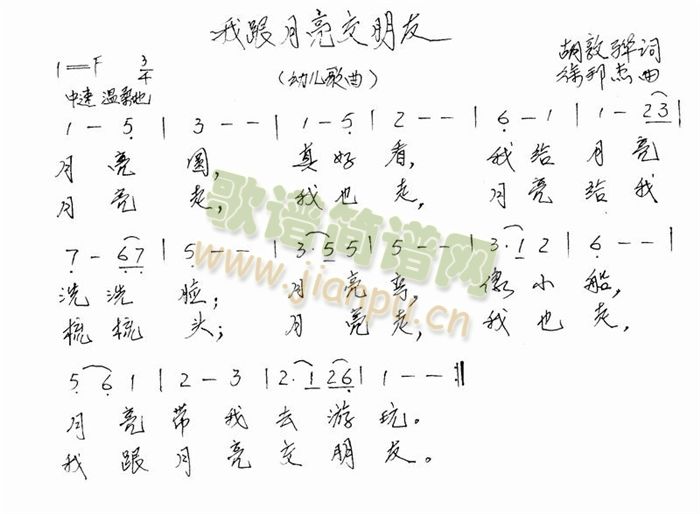 我跟月亮交朋友
(幼儿歌曲)
1=F 3/4
胡敦骅词
徐邦杰曲
中速 温柔地
1 - 5 | 3 - - | 1 - 5 | 2 - - | 6 - 1 | 1 - 23 |
月亮圆,真好看,我给月亮
月亮走,我也走,月亮给我
7 - 67 | 5 - - | 3·5 5 | 5 - - | 3·1 2 | 6 - - |
洗洗脸;月亮弯,像小船,
梳梳头;月亮走,我也走,
5 6 1 | 2 - 3 | 2·1 26 | 1 - - :||
月亮带我去游玩。
我跟月亮交朋友。
歌谱简谱网
www.jianpu.cn